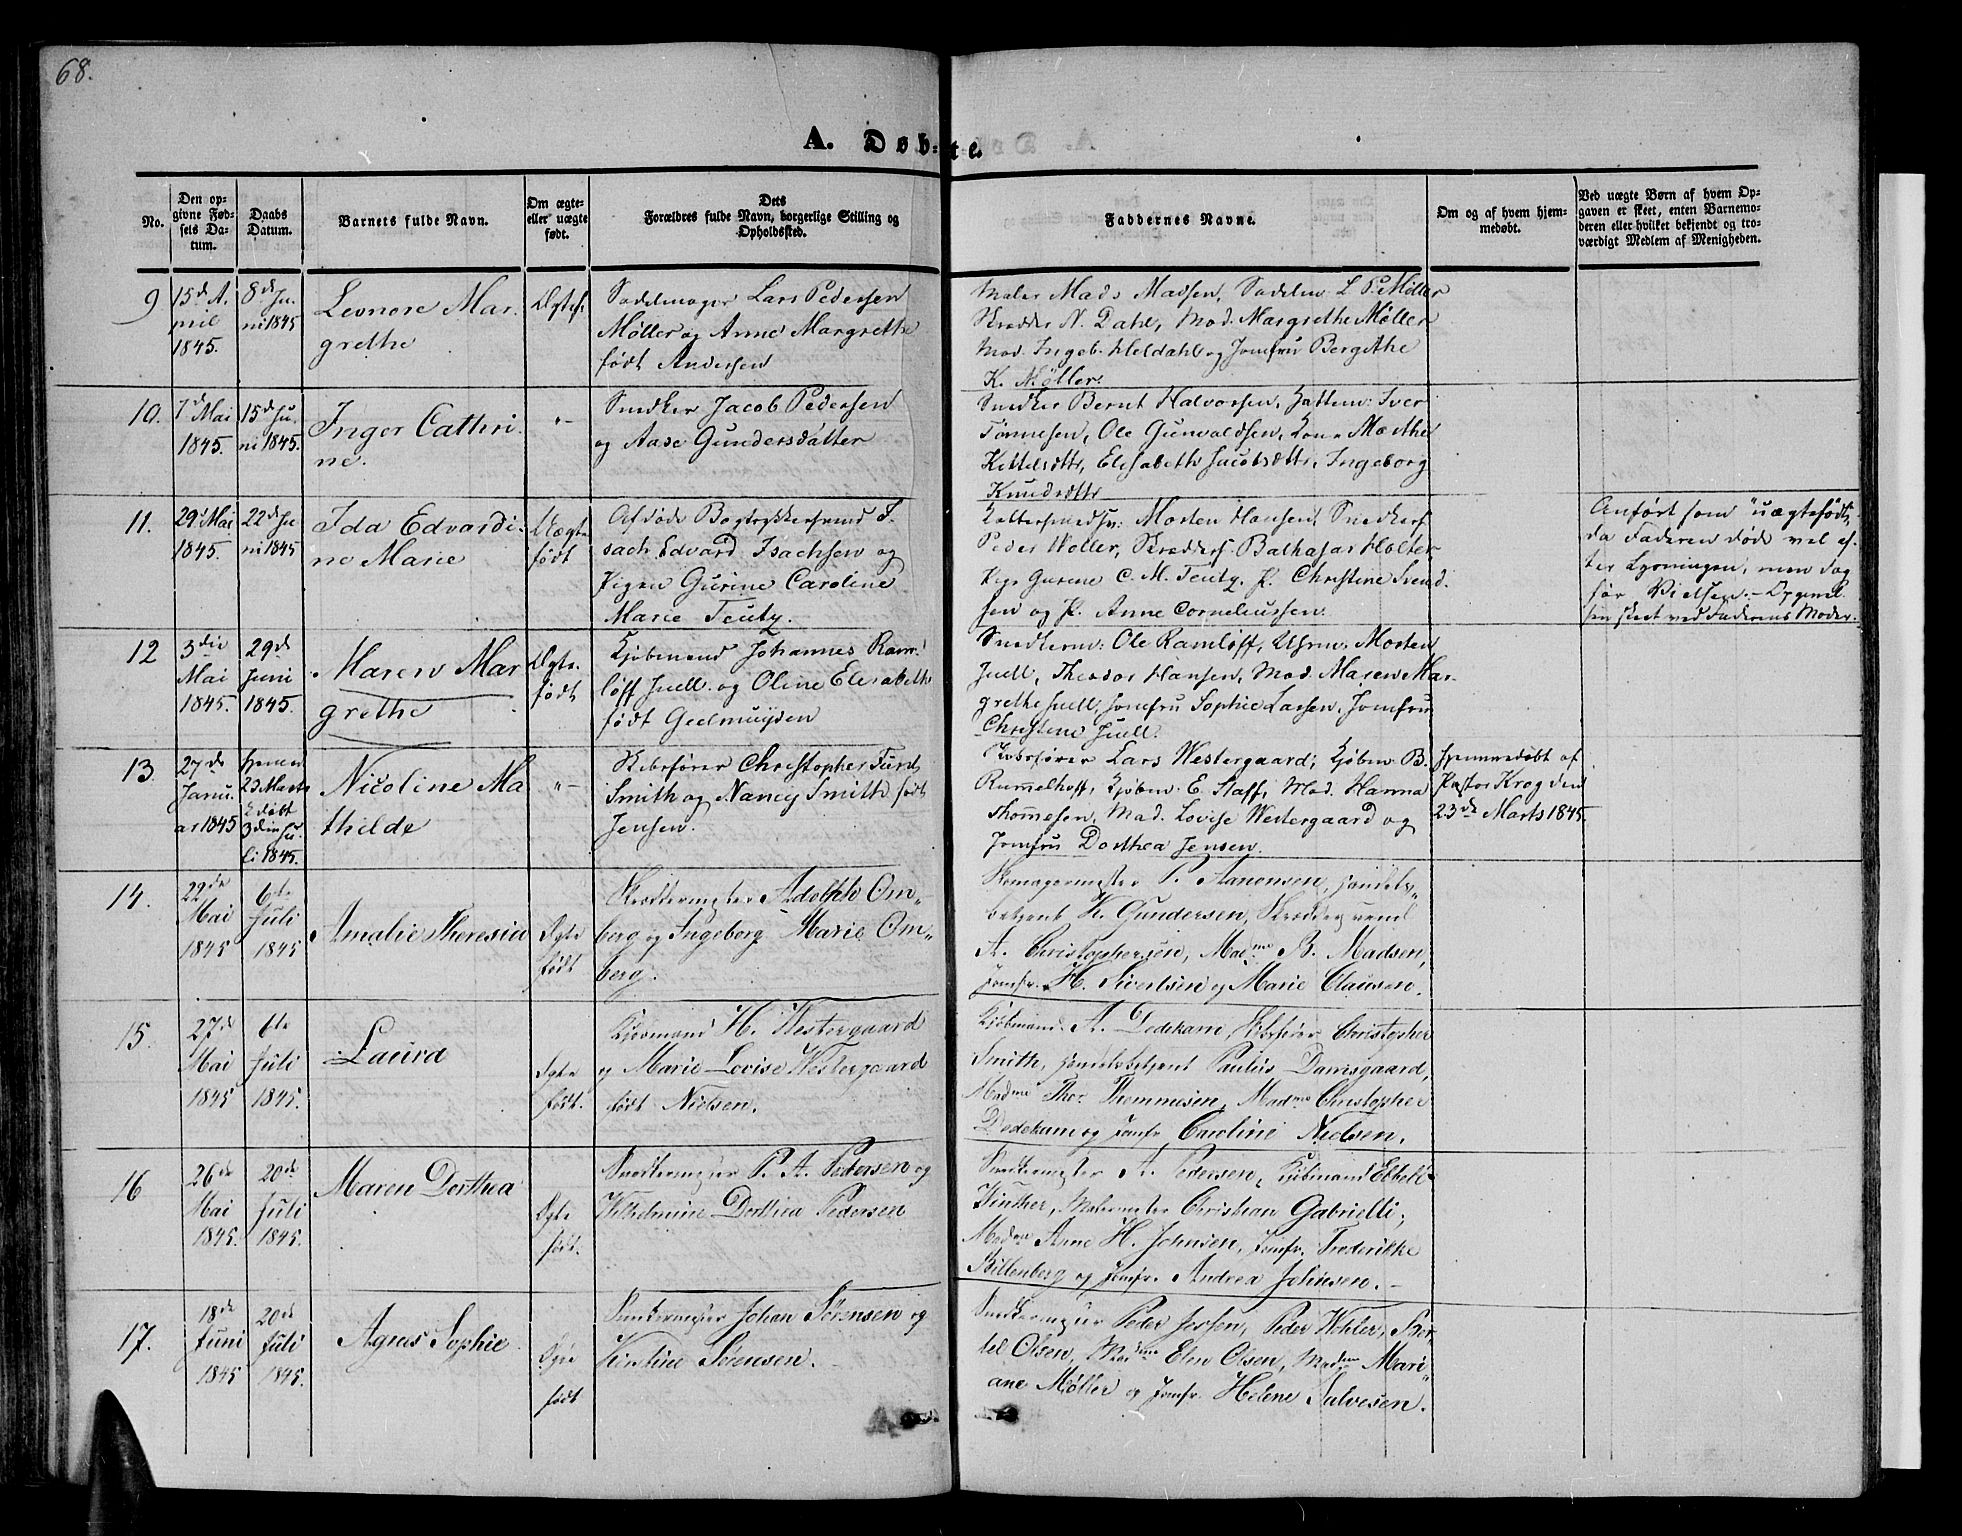 68.
A. Døb-
te.
No.
Den op-
givne Fød-
sels Da-
tum.
Daabs
Datum.
Barnets fulde Navn.
Om ægte-
eller uægte
født.
Dets
Forældres fulde Navn, borgerlige Stilling og
Opholdssted.
Faddernes Navne.
Om og af hvem hjem-
medøbt.
Ved uægte Børn af hvem Op-
gaven er skeet, enten Barnemo-
deren eller hvilket bekjendt og tro-
værdigt Medlem af Menigheden.
9
15d A.
pril
1845.
8d Ju-
ni 1845
Leonore Mar-
grethe
Ægtef.
Sadelmager Lars Pedersen
Møller og Anne Margrethe
født Andersen
Maler Mads Madsen, Sadelm. L P. Møller
Skrædder N. Dahl, Mad. Margrethe Møller
Mad. Ingeb. Heldahl og Jomfru Bergithe
K. Møller.
10.
7d Mai
1845.
15d Ju-
ni 1845.
Inger Cathri-
ne.
"-
Snedker Jacob Pedersen
og Aase Gundersdatter
Snedker Bernt Halvorsen, Iver
Tønnesen, Ole Gunvaldsen, Kone Marthe
Kittelsdttr, Elisabeth Jacobsdttr, Ingeborg
Knudsdttr
11.
29d Mai
1845.
22d Ju-
ni 1845
Ida Edvardi-
ne Marie
Uægte
født
Afdøde Bogtrykkersvend I-
sach Edvard Isachsen og
Pigen Gurine Caroline
Marie Teutz.
Morten Hansen, Snedkers.
Peder Woller, Skrædders. Balthasar Holter
Pige Gurene C. M. Teutz, P. Christine Svend-
sen og P. Anne Corneliussen.
Anført som "uægtefødt",
da Faderen døde vel ef-
ter Lysningen, men dog
før Vielsen. - Opgivel-
sen skeet ved Faderens Moder.
12
3die
Mai
1845.
29d
Juni
1845.
Maren Mar-
grethe
Ægte-
født
Kjøbmand Johannes Ram-
løff Juell og Oline Elisabeth
født Geelmuyden
Snedkerm: Ole Ramløff, Uhrm: Morten
Juell, Theodor Hansen, Mad. Maren Mar-
grethe Juell, Jomfru Sophie Larsen, Jomfru
Christine Juell.
13.
27de
Janu-
ar 1845
hjemme
23 Marts
døbt
3die Ju-
li 1845.
Nicoline Ma-
thilde
"-
Skibsfører Christopher Fürst
Smith og Nancy Smith født
Jensen.
Skibsfører Lars Westergaard, Kjøbm: B.
Rummelhoff, Kjøbm. E. Staff, Mad. Hanna
Thommesen, Mad. Lovise Westergaard og
Jomfru Dorthea Jensen.
Hjemmedøbt af
Pastor Krog den
23de Marts 1845.
14.
29de
Mai
1845
6te
Juli
1845
Amalie Theresia
Ægte
født
Skræddermester Adolph Om-
berg og Ingeborg Marie Om-
berg.
Skomagermester P. Aanonsen, Handels-
betjent K. Gundersen, Skræddersvend
A. Christophersen, Madme B. Madsen,
Jomfr. H. Sivertsen og Marie Clausen.
15.
27de
Mai
1845
6te
Juli
1845.
Laura
Ægte
født.
Kjøbmand H. Westergaard
og Marie Lovise Westergaard
født Nielsen.
Kjøbmand A. Dedekam, Skibsfører Christopher
Smith, Handelsbetjent Paulus Damsgaard,
Madme Thor. Thommesen, Madme Christopher
Dedekam og Jomfr Caroline Nielsen.
16
26de
Mai
1845.
20de
Juli
1845.
Maren Dorthea
Ægte
født.
Snedkermester P. A. Pedersen og
Wilhelmine Dorthea Pedersen
Snedkermester A. Pedersen, Kjøbmand Ebbell
Winther, Malermester Christian Gabrielli,
Madme Anne H. Johnsen, Jomfr. Frederikke
Billenberg og Jomfr. Andrea Johnsen. -
17.
18de
Juni
1845
20de
Juli
1845.
Agnes Sophie
Ægte
født
Snedkermester Johan Sørensen og
Kirstine Sørensen.
Snedkermester Peder Jessen, Peder Wohler,
Olsen, Madme Elen Olsen, Madme Mari-
ane Møller og Jomfr. Helene Salvesen.